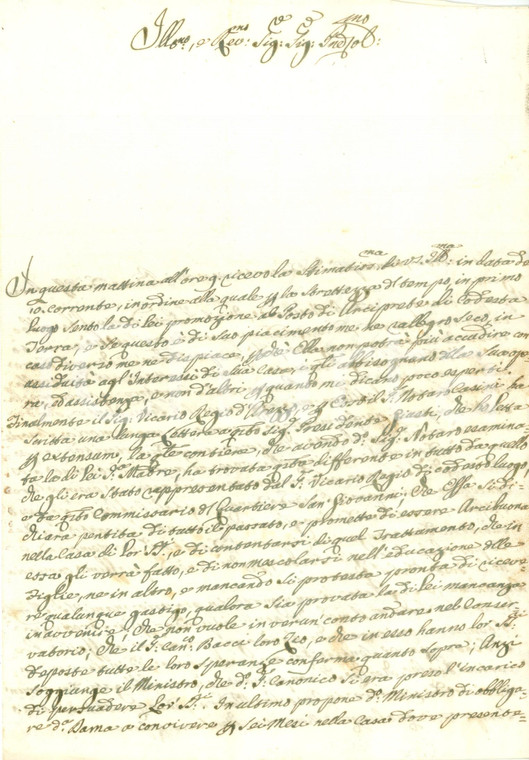 Illmo, e Revmo Sig: Sig: Pne Col:
In questa mattina all'ore 9. ricevo la stimatis.ma di V.S. Ill.ma in data de
10 corrente, in ordine alla quale p la strettezza di tempo, in primo
luogo sento la di Lei promozione al Posto di Arciprete di codesta
Terra, e se questo è di suo piacimento me ne rallegro seco, in
caso diverso me ne dispiace, p che Ella non potrà più accudire con
assiduità agl'Interessi di Sua Casa, e gli abbisognano della Sua ope=
ra, ed assistenza, e non d'altri p quando mi dicano poco esperti.
Finalmente il Sig: Vicario Regio d' e p Cerbil S. Notaro Casini ha
scritta una lunga lettera a q.to Sig. Presidente Giusti, che ho letta
p extensum, la q.le contiene, che avendo d.o Sig: Notaro esamina=
ta la di Lei S.a Madre, ha trovata q.ta differente in tutto da quello
che gli era stato rappresentato dal S. Vicario Regio di codesto luogo,
e da q.to Commissario del Quartiere San Giovanni: Che Essa si di=
chiara pentita di tutto il passato, e promette di essere Arcibuona
nella Casa di Lor SS:, e di contentarsi di quel Trattamento, che in
essa gli verrà fatto, e di non mescolarsi nell'educazione delle
Figlie, ne in altro, e mancando si protesta pronta di riceve=
re qualunque gastigo, qualora sia provata la di Lei mancanza
in avvenire: Che non vuole in verun conto andare nel Conser=
vatorio; che il S. Can: Bacci loro Zio, e che in esso hanno lor SS:ri
deposte tutte le loro speranze conferma quanto sopra; Anzi
soggiunge il Ministro, che d.o S. Canonico si era preso l'incarico
di persuadere Lor SS.ri. In ultimo propone d.o Ministro di obbliga=
re d.a Dama a convivere p sei Mesi nella Casa dove presente=